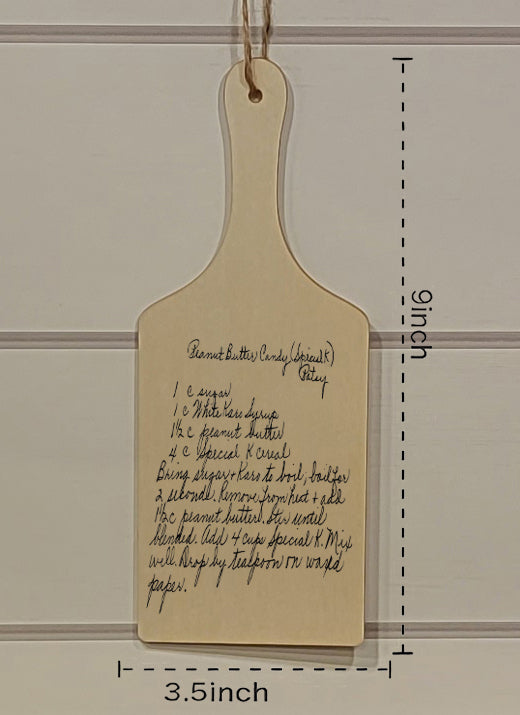 Peanut Butter Candy (Special K)
Patsy
1 c sugar
1 c White Karo Syrup
1½ c peanut butter
4 c Special K cereal
Bring sugar + Karo to boil, boil for
2 seconds. Remove from heat + add
1½c peanut butter. Stir until
blended. Add 4 cups Special K. Mix
well. Drop by teaspoon on waxed
paper.
9inch
3.5inch